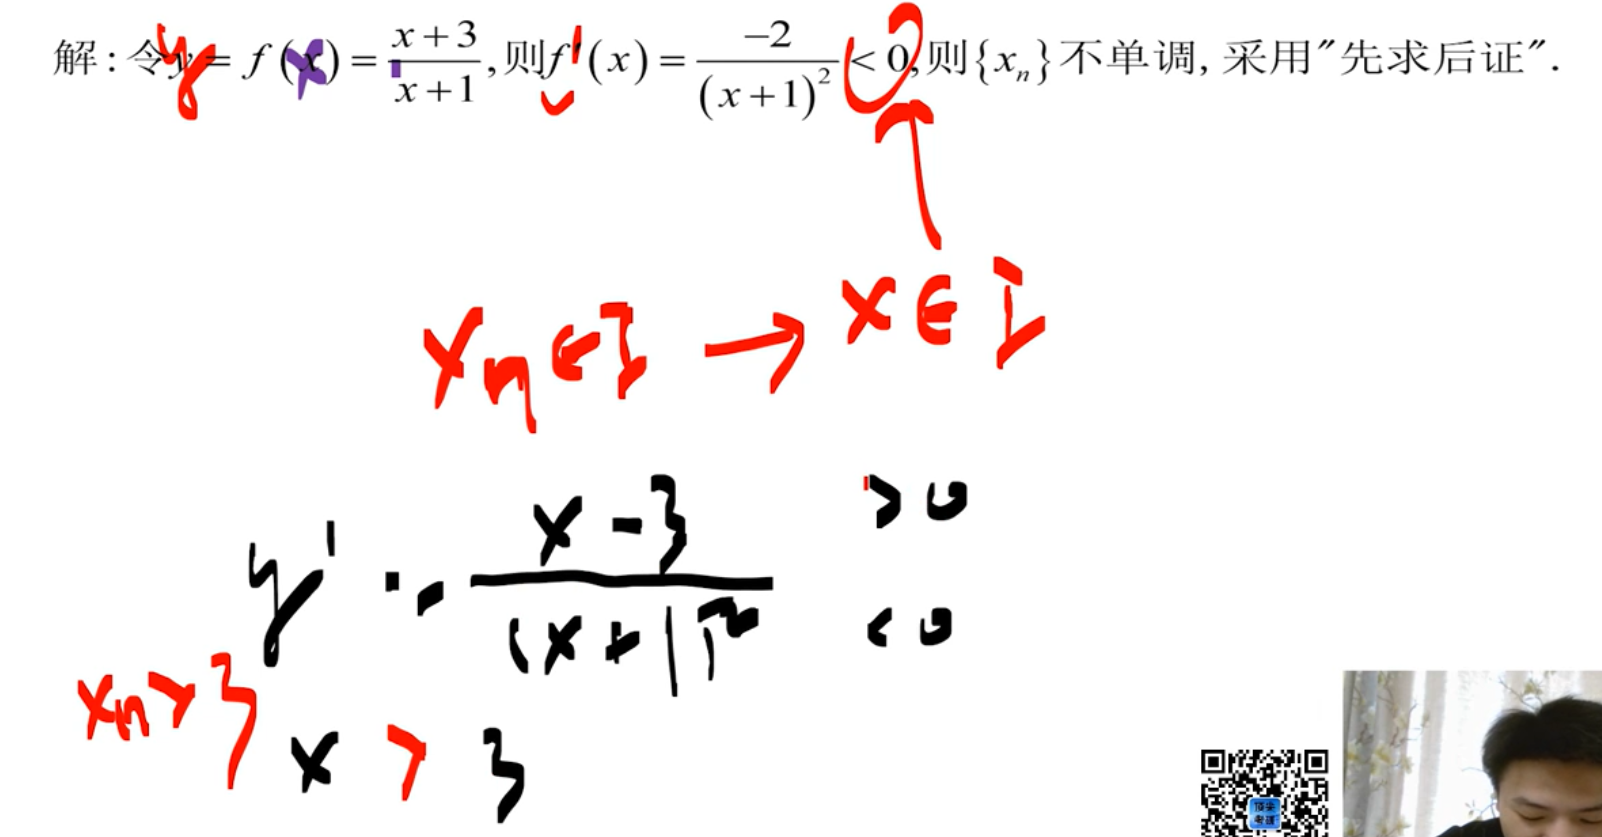 解:令y = f(x) = \frac{x+3}{x+1},则f'(x) = \frac{-2}{(x+1)^2} < 0,则{x_n}不单调,采用"先求后证".
x_n ∈ I → x ∈ I
y' = \frac{x-3}{(x+1)^2} > 0
< 0
x_n > 3
x > 3
顶尖
考研